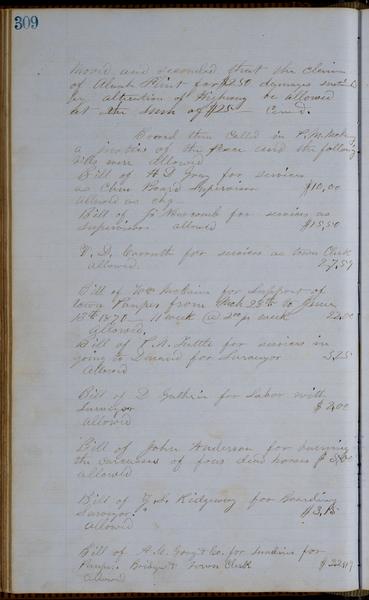 309
Moved and seconded that the claim
of Flint for $250 damages
by alteration of Highway be allowed
at the sum of $25 Carrd.
Board then called in P.
a Justice of the Peace and the following
Bills were allowed
Bill of H D Gray for services
as Chm Board Supervisors $10,00
allowed as chg
Bill of for services as
Supervisor allowed $15,50
V. D. for services as town Clerk
allowed. 27,57
Bill of Wm for Support of
town Pauper from 28th to June
13th 1870 11 week @ 2 00 pr week 22,00
Allowed,
Bill of P. A. Tuttle for services in
going to for Surveyor
Allowed
Bill of D Guthrie for Labor with
Surveyor $ 2,00
allowed
Bill of John Anderson for burning
the carcasses of four dead horses $ 5,00
allowed
Bill of Ridgway for Boarding
Surveyor. $3,15
Allowed
Bill of A. M. Gray & Co. for Sundries for
Pauper Bridge & Town Clerk
allowed